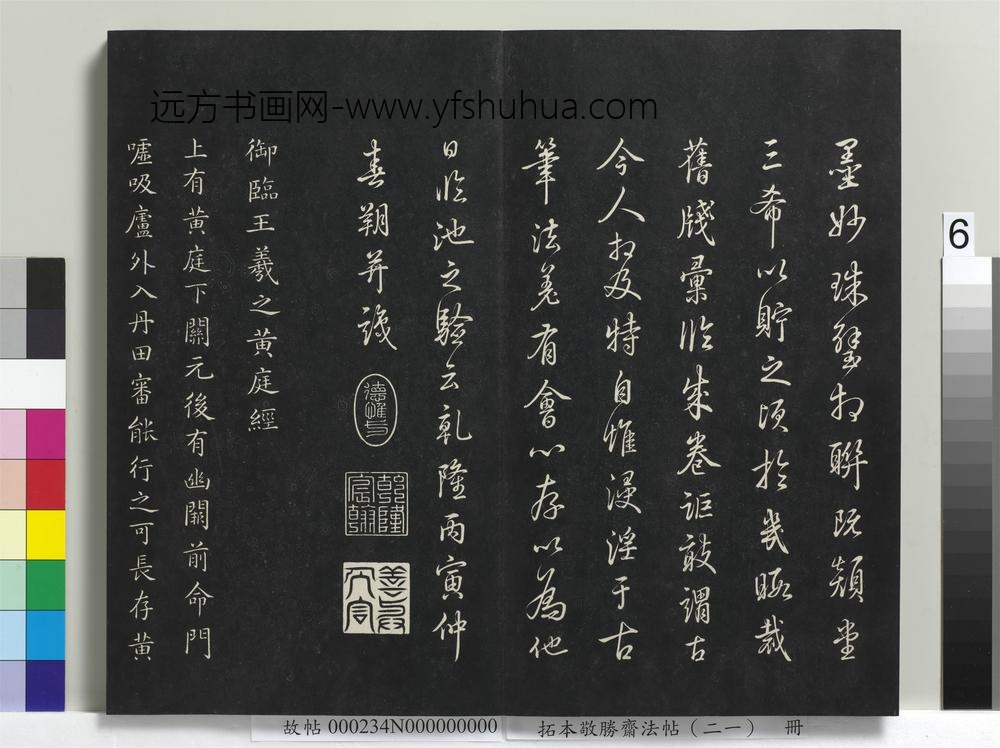 远方书画网-www.yfshuhua.com
墨妙珠璧相聯既顏堂
三希以貯之頃於幾暇裁
舊牋彙臨成卷詎敢謂古
今人相及特自惟浸淫于古
筆法差有會心存以為他
日臨池之驗云乾隆丙寅仲
春朔并識
德惟馨
乾隆宸翰
御臨王羲之黃庭經
上有黃庭下關元後有幽闕前命門
噓吸廬外入丹田審能行之可長存黃
6
故帖 000234N000000000 拓本敬勝齋法帖（二一） 冊